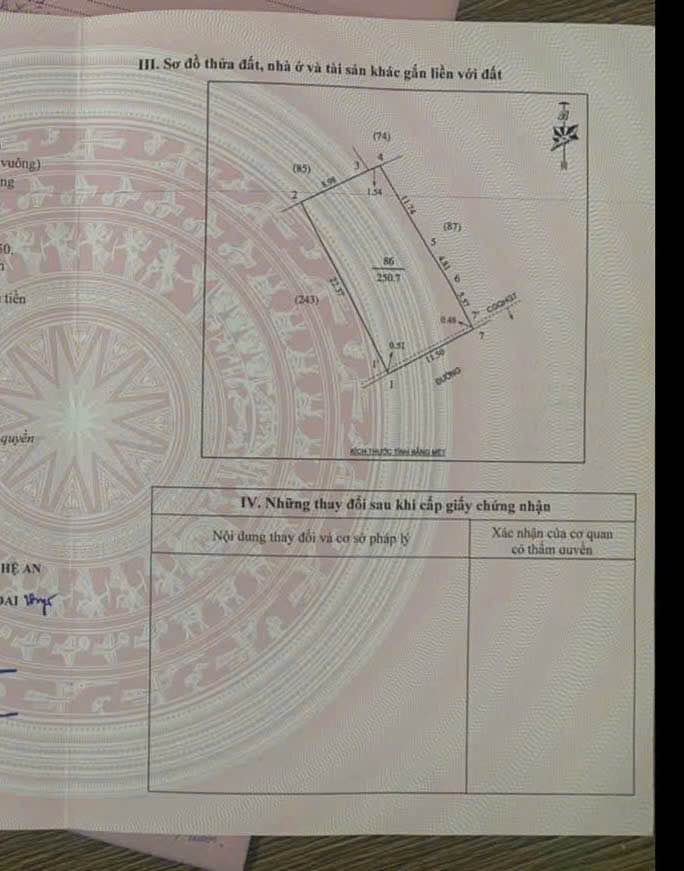 III. Sơ đồ thửa đất, nhà ở và tài sản khác gắn liền với đất
vuông)
ng
50.
tiền
quyền
HỆ AN
ĐAI
(74)
(85)
3
4
8.98
2
1.54
11.74
(87)
5
86
250.7
4.81
6
22.37
(243)
5.57
CGQHGT
0.48
7'
7
0.51
1'
11.50
1
ĐƯỜNG
KÍCH THƯỚC TÍNH BẰNG MÉT
IV. Những thay đổi sau khi cấp giấy chứng nhận
Nội dung thay đổi và cơ sở pháp lý
Xác nhận của cơ quan
có thẩm quyền